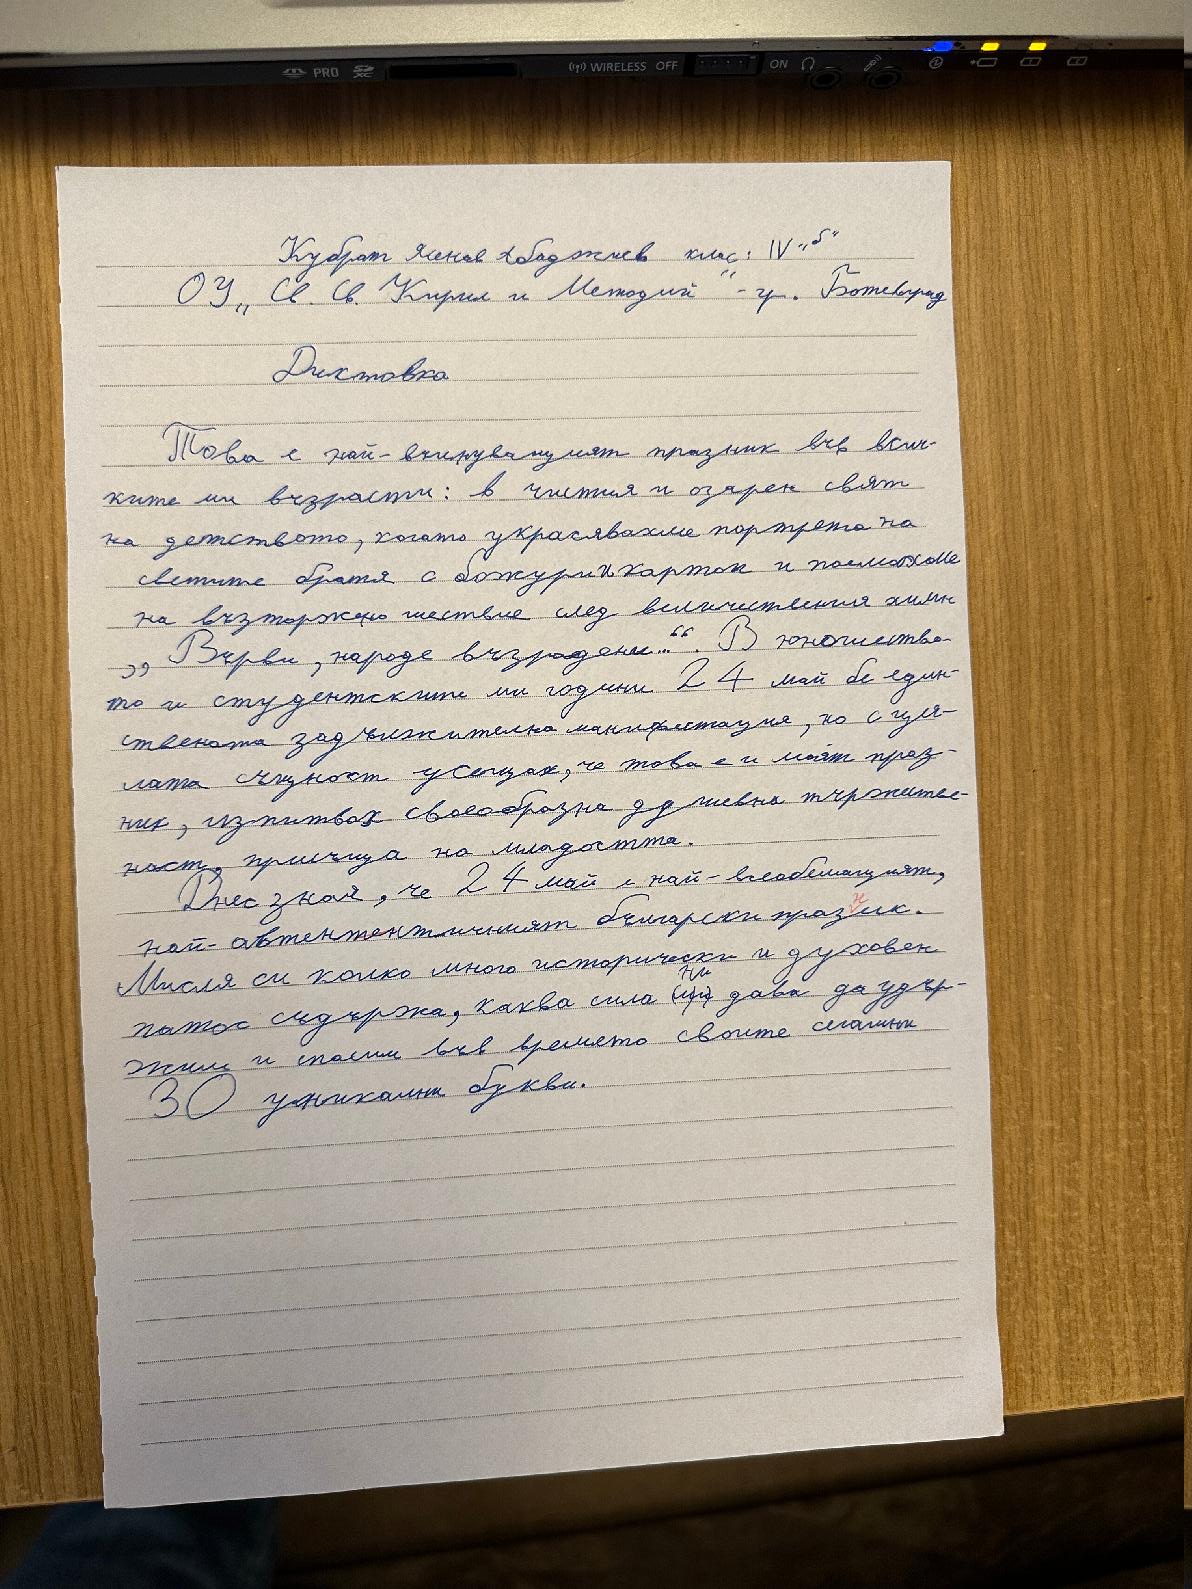 PRO WIRELESS OFF ON
Кубрат Абаджиев клас: IV "б"
ОУ „Св. Св. Кирил и Методий" - гр. Ботевград
Диктовка
Това е най-вълнуващият празник във всич-
ките ми възрасти: в чистия и озарен свят
на детството, когато украсявахме портрета на
светите братя с божури и понасяхме
на възторжено шествие след величествения химн
„Върви, народе възродени..." В юношество-
то и студентските ми години 24 май бе един-
ствената задължителна манифестация, но с ця-
лата същност усещах, че това е и моят праз-
ник, изпитвах своеобразна душевна тържестве-
ност, на младостта.
Днес зная, че 24 май е най-всеобемащият,
най-автентентичният български празник.
Мисля си колко много исторически и духовен
патос съдържа, каква сила ни дава да удър-
жим и спасим във времето своите
30 уникални букви.